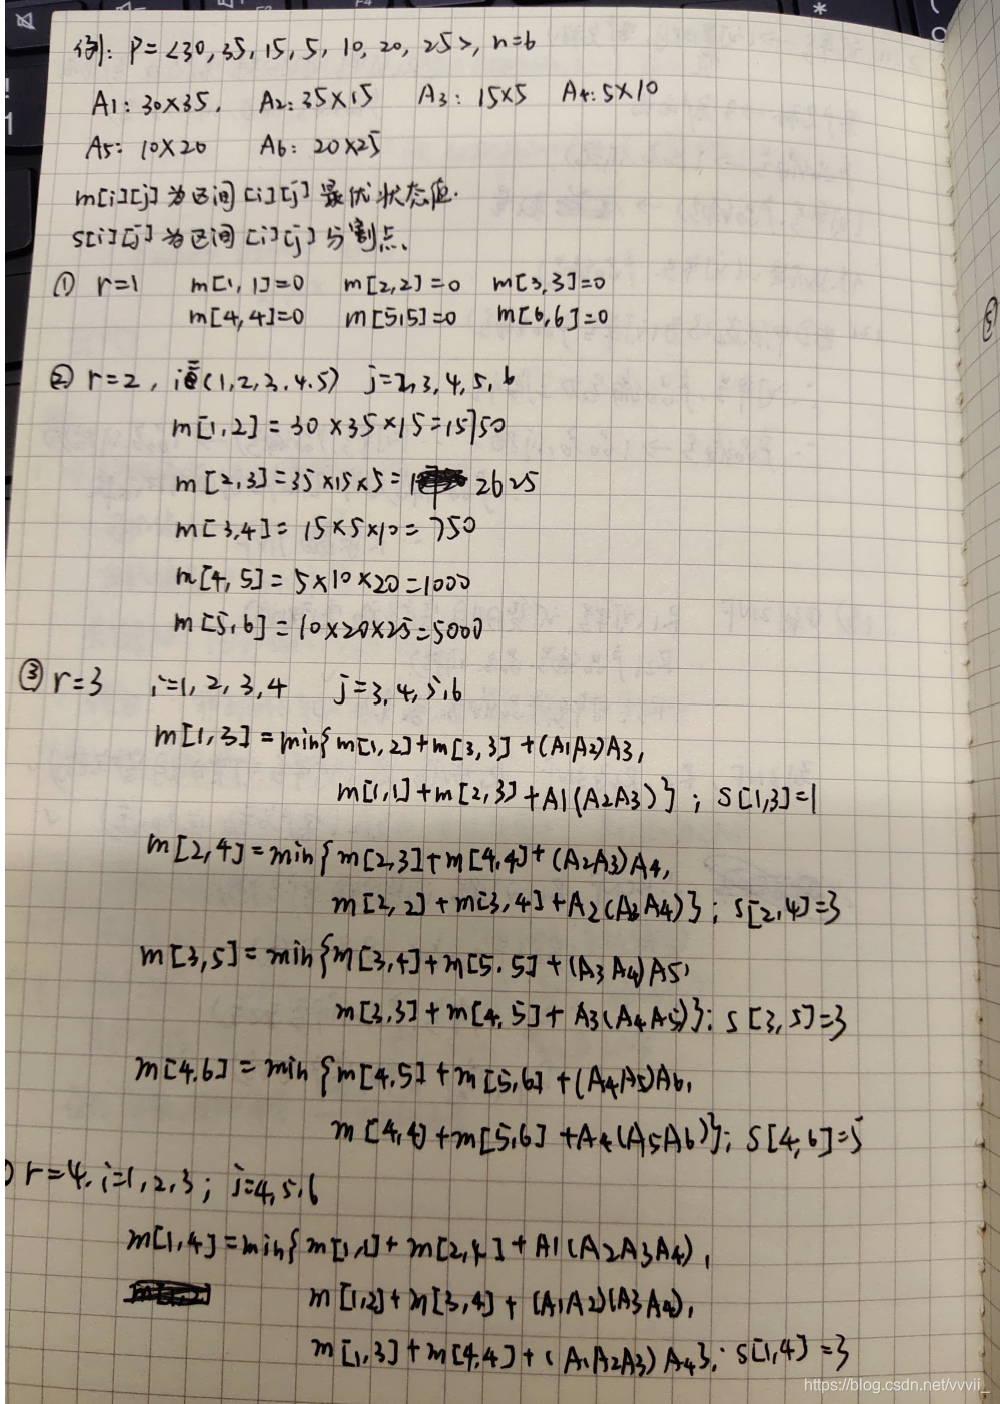 例: P=<30, 35, 15, 5, 10, 20, 25>, n=6
A1: 30×35. A2: 35×15 A3: 15×5 A4: 5×10
A5: 10×20 A6: 20×25
m[i][j] 为区间 [i][j] 最优状态值.
s[i][j] 为区间 [i][j] 分割点.
① r=1 m[1,1]=0 m[2,2]=0 m[3,3]=0
m[4,4]=0 m[5,5]=0 m[6,6]=0
② r=2, i (1,2,3,4,5) j=2,3,4,5,6
m[1,2]=30×35×15=15750
m[2,3]=35×15×5= 2625
m[3,4]=15×5×10=750
m[4,5]=5×10×20=1000
m[5,6]=10×20×25=5000
③ r=3 i=1,2,3,4 j=3,4,5,6
m[1,3]=min{m[1,2]+m[3,3]+(A1A2)A3,
m[1,1]+m[2,3]+A1(A2A3)}; S[1,3]=1
m[2,4]=min{m[2,3]+m[4,4]+(A2A3)A4,
m[2,2]+m[3,4]+A2(A3A4)}; S[2,4]=3
m[3,5]=min{m[3,4]+m[5,5]+(A3A4)A5,
m[3,3]+m[4,5]+A3(A4A5)}; S[3,5]=3
m[4,6]=min{m[4,5]+m[5,6]+(A4A5)A6,
m[4,4]+m[5,6]+A4(A5A6)}; S[4,6]=5
r=4, i=1,2,3; j=4,5,6
m[1,4]=min{m[1,1]+m[2,4]+A1(A2A3A4),
m[1,2]+m[3,4]+(A1A2)(A3A4),
m[1,3]+m[4,4]+(A1A2A3)A4}; S[1,4]=3
⑤
https://blog.csdn.net/vvvii_